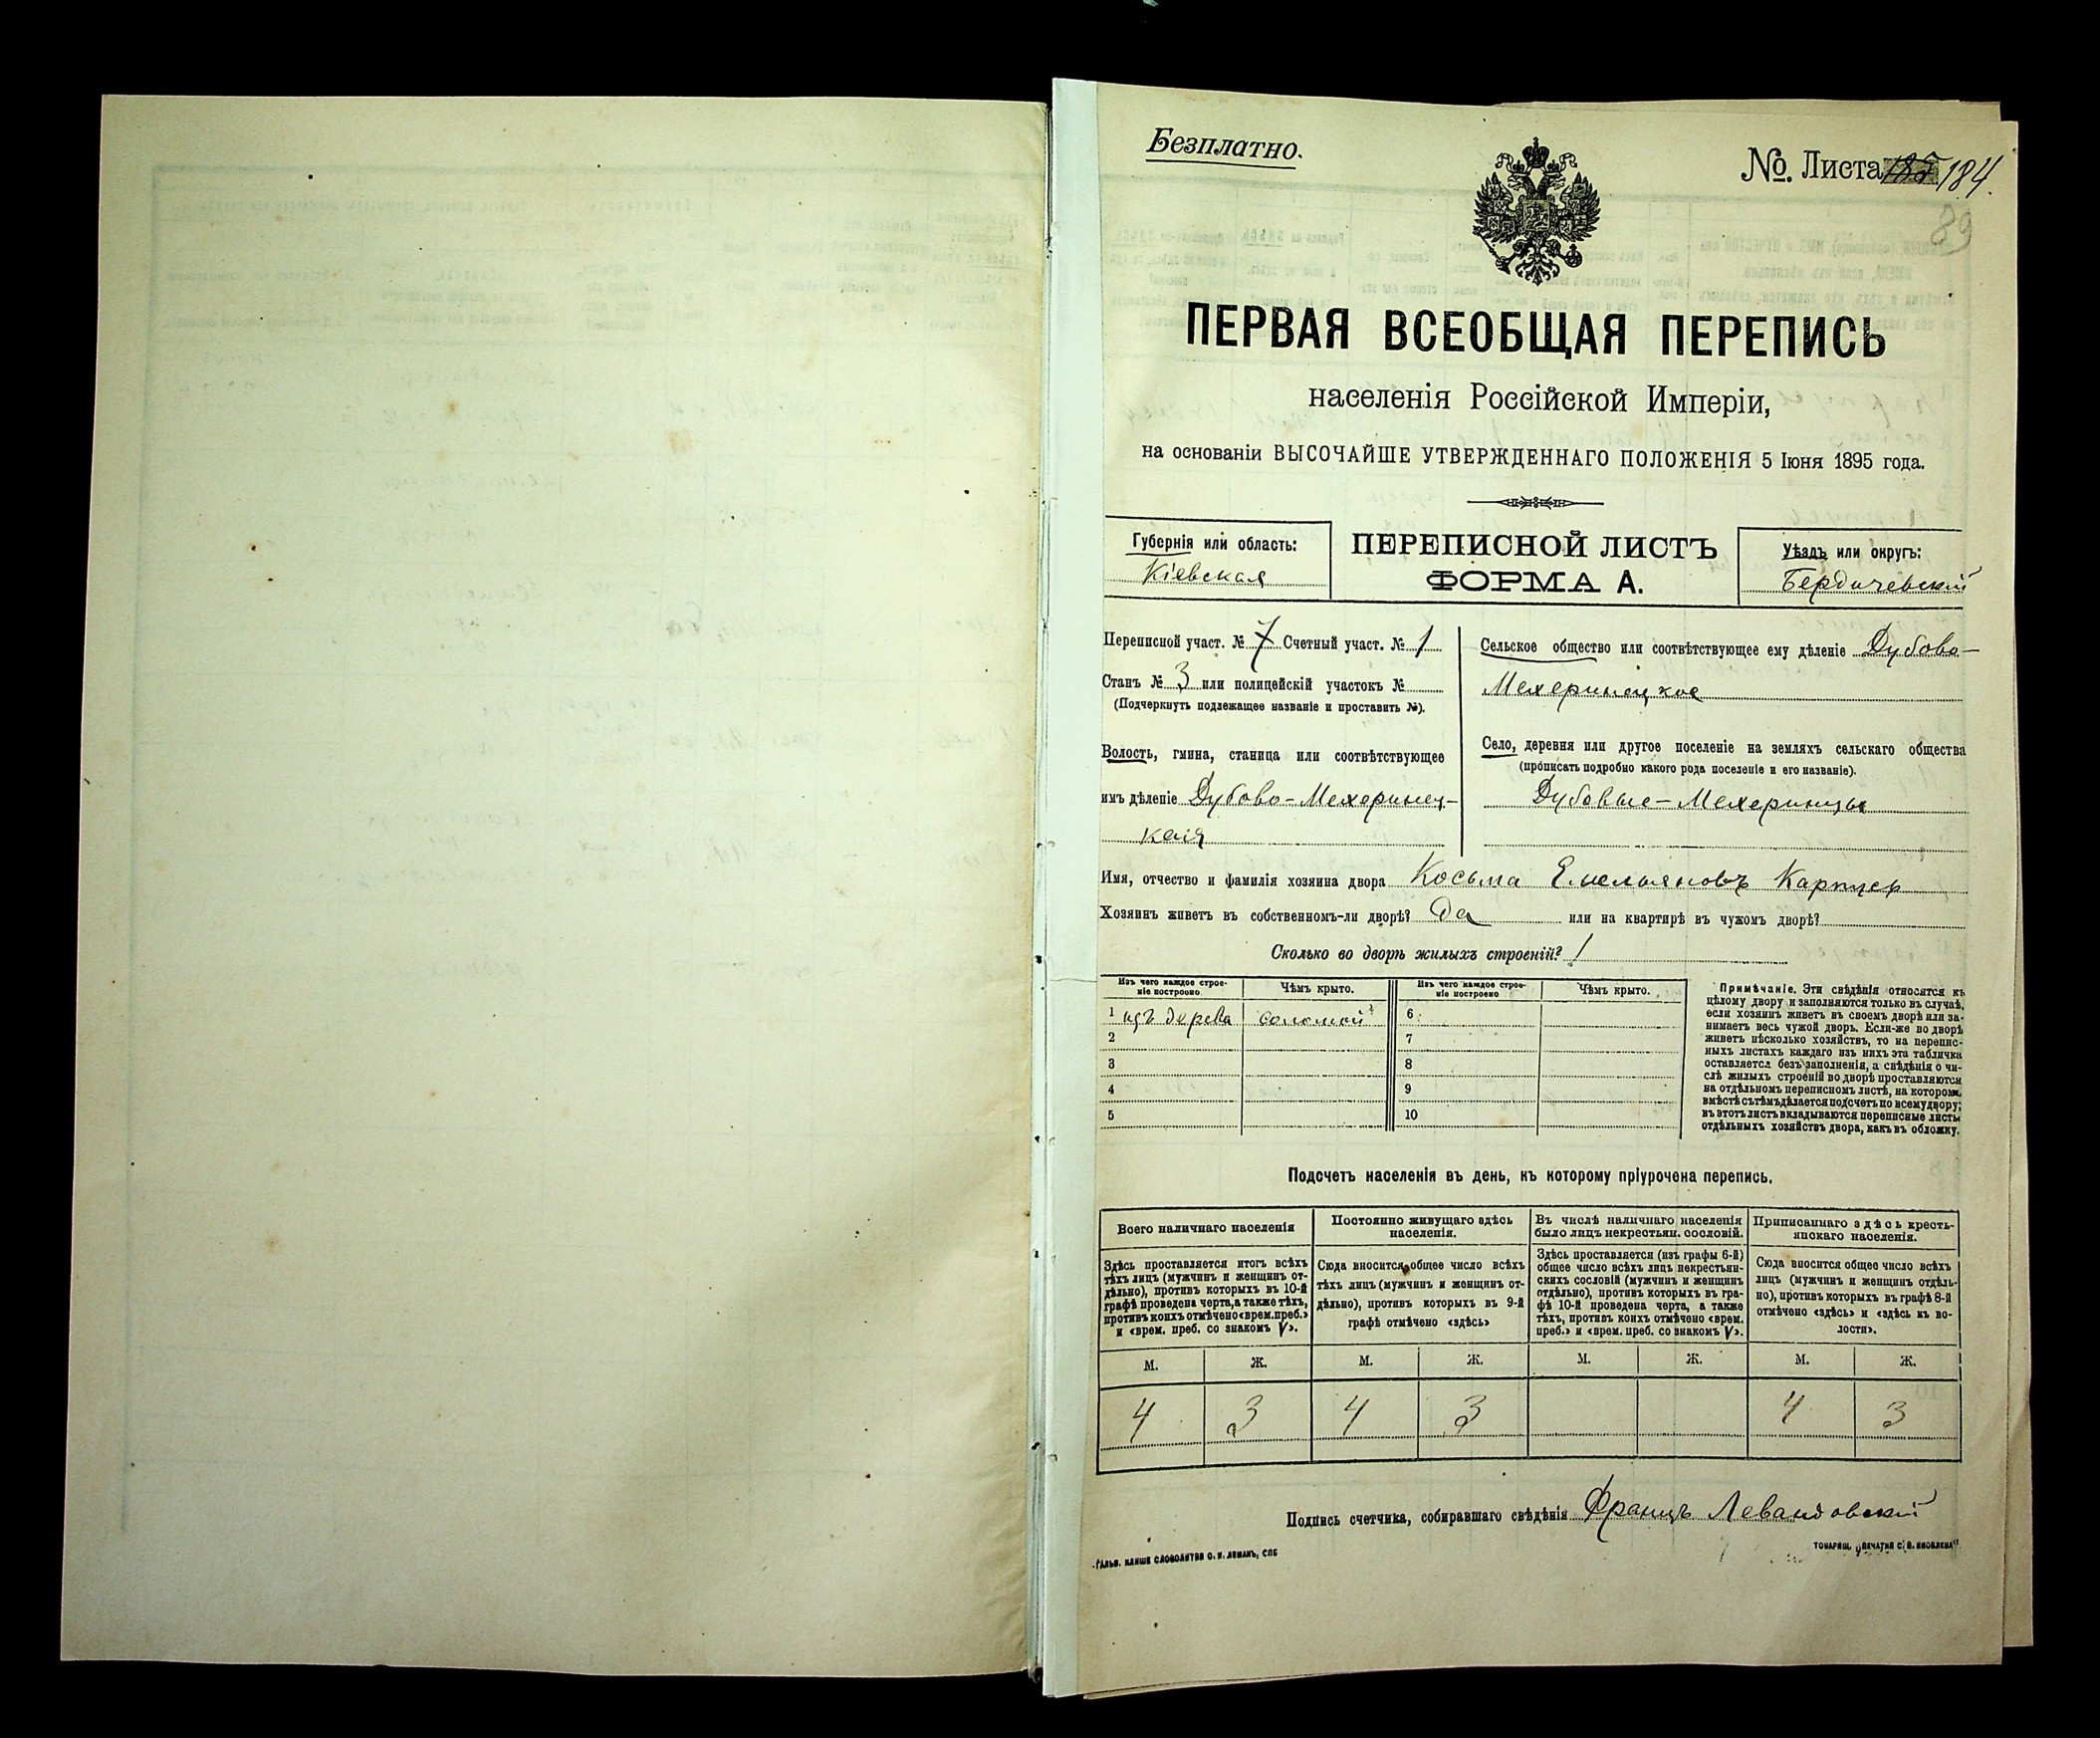 Безплатно.
№. Листа 184.
89
ПЕРВАЯ ВСЕОБЩАЯ ПЕРЕПИСЬ
населенія Россійской Имперіи,
на основаніи ВЫСОЧАЙШЕ УТВЕРЖДЕННАГО ПОЛОЖЕНІЯ 5 Іюня 1895 года.
Губернія или область:
Кіевская
ПЕРЕПИСНОЙ ЛИСТЪ
ФОРМА А.
Уѣздъ или округъ:
Бердичевскій
Переписной участ. № 7 Счетный участ. № 1
Станъ № 3 или полицейскій участокъ №
(Подчеркнуть подлежащее названіе и проставить №).
Волость, гмина, станица или соотвѣтствующее
имъ дѣленіе Дубово-Мехеринец-
кая
Сельское общество или соотвѣтствующее ему дѣленіе Дубово-
Мехеринецкое
Село, деревня или другое поселеніе на земляхъ сельскаго общества
(прописать подробно какого рода поселеніе и его названіе).
Дубовые-Мехеринцы
Имя, отчество и фамилія хозяина двора Косьма Емельяновъ
Хозяинъ живетъ въ собственномъ-ли дворѣ? Да или на квартирѣ въ чужомъ дворѣ?
Сколько во дворѣ жилыхъ строеній? 1
Изъ чего каждое строе-
ніе построено
Чѣмъ крыто.
Изъ чего каждое строе-
ніе построено
Чѣмъ крыто.
1 изъ дерева соломой 6
2 7
3 8
4 9
5 10
Примѣчаніе. Эти свѣдѣнія относятся къ
цѣлому двору и заполняются только въ случаѣ,
если хозяинъ живетъ въ своемъ дворѣ или за-
нимаетъ весь чужой дворъ. Если-же во дворѣ
живетъ нѣсколько хозяйствъ, то на перепис-
ныхъ листахъ каждаго изъ нихъ эта табличка
оставляется безъ заполненія, а свѣдѣнія о чи-
слѣ жилыхъ строеній во дворѣ проставляются
на отдѣльномъ переписномъ листѣ, на которомъ
вмѣстѣ съ тѣмъ дѣлается подсчетъ по всему двору;
въ этотъ листъ вкладываются переписные листы
отдѣльныхъ хозяйствъ двора, какъ въ обложку.
Подсчетъ населенія въ день, къ которому пріурочена перепись.
Всего наличнаго населенія
Здѣсь проставляется итогъ всѣхъ
тѣхъ лицъ (мужчинъ и женщинъ от-
дѣльно), противъ которыхъ въ 10-й
графѣ проведена черта, а также тѣхъ,
противъ коихъ отмѣчено «врем. преб.»
и «врем. преб. со знакомъ V».
Постоянно живущаго здѣсь
населенія.
Сюда вносится общее число всѣхъ
тѣхъ лицъ (мужчинъ и женщинъ от-
дѣльно), противъ которыхъ въ 9-й
графѣ отмѣчено «здѣсь»
Въ числѣ наличнаго населенія
было лицъ некрестьян. сословій.
Здѣсь проставляется (изъ графы 6-й)
общее число всѣхъ лицъ некрестьян-
скихъ сословій (мужчинъ и женщинъ
отдѣльно), противъ которыхъ въ гра-
фѣ 10-й проведена черта, а также
тѣхъ, противъ коихъ отмѣчено «врем.
преб.» и «врем. преб. со знакомъ V».
Приписаннаго здѣсь кресть-
янскаго населенія.
Сюда вносится общее число всѣхъ
лицъ (мужчинъ и женщинъ отдѣль-
но), противъ которыхъ въ графѣ 8-й
отмѣчено «здѣсь» и «здѣсь къ во-
лости».
М. Ж. М. Ж. М. Ж. М. Ж.
4 3 4 3 4 3
Подпись счетчика, собиравшаго свѣдѣнія Францъ Левандовскій
ГАЛЬВ. КЛИШЕ СЛОВОЛИТНИ О. И. ЛЕМАНЪ, СПБ